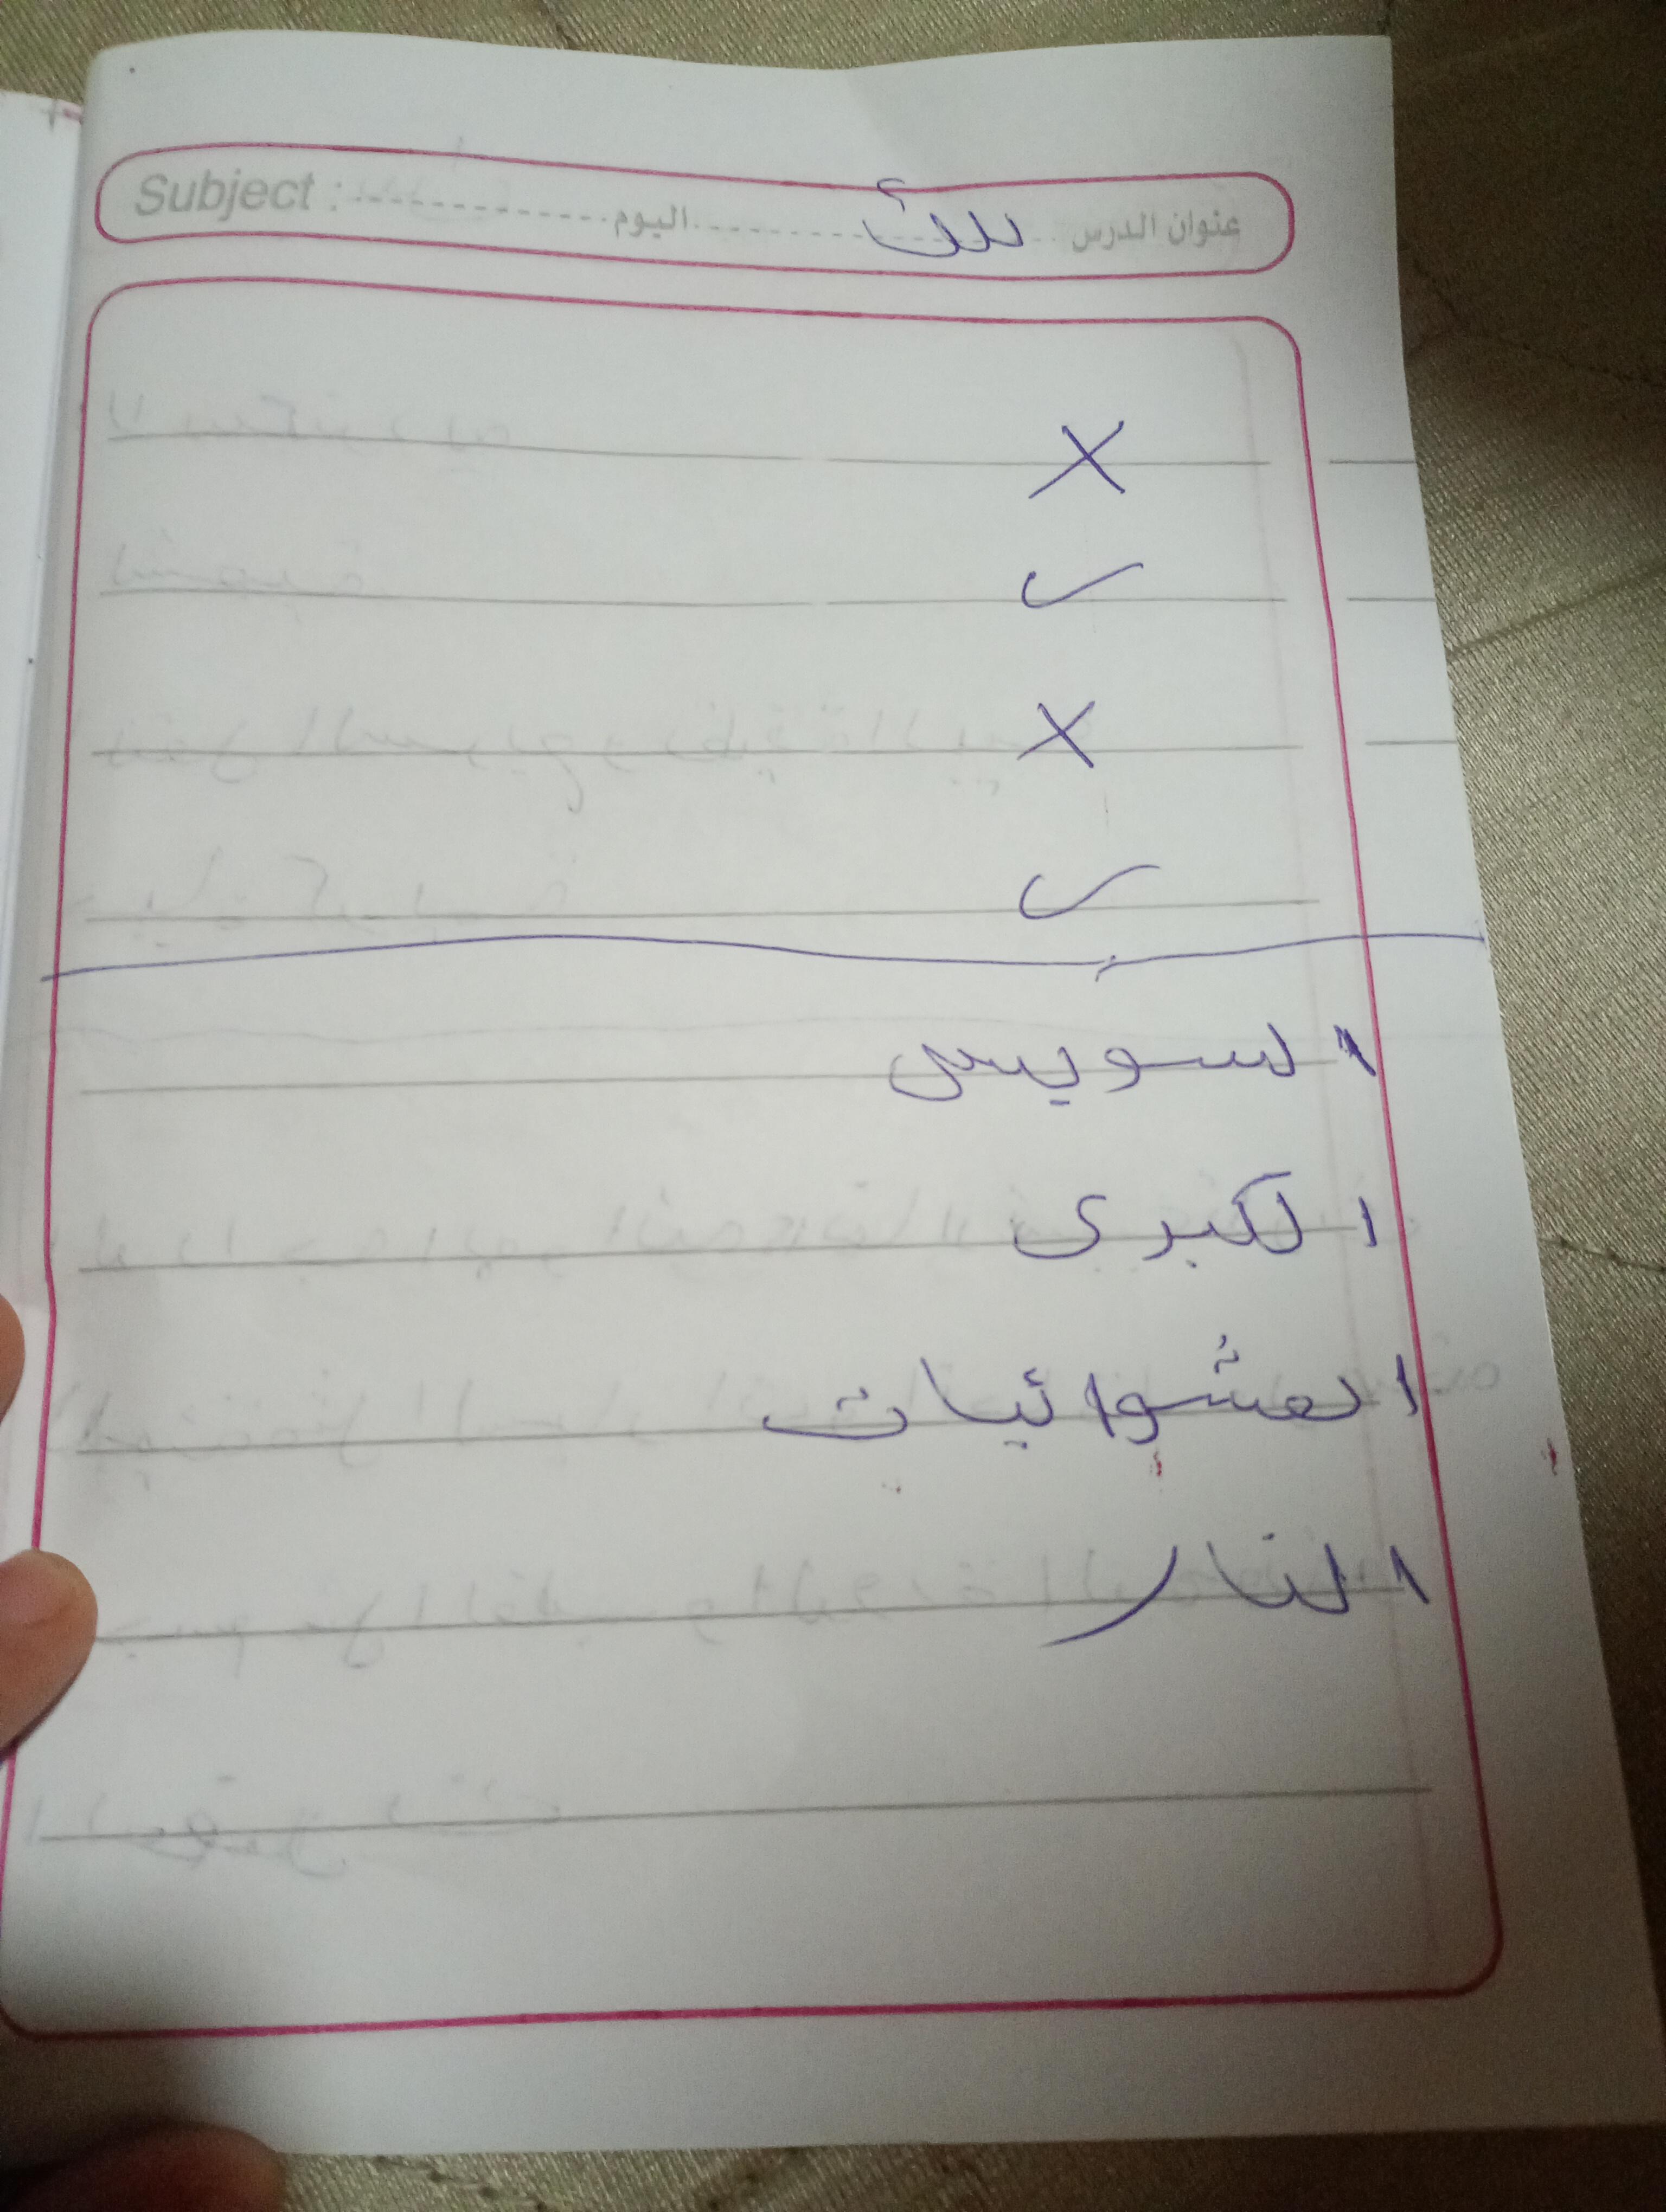 عنوان الدرس اليوم Subject :
X
✓
X
✓
السويس
الكبرى
العشوائيات
النار